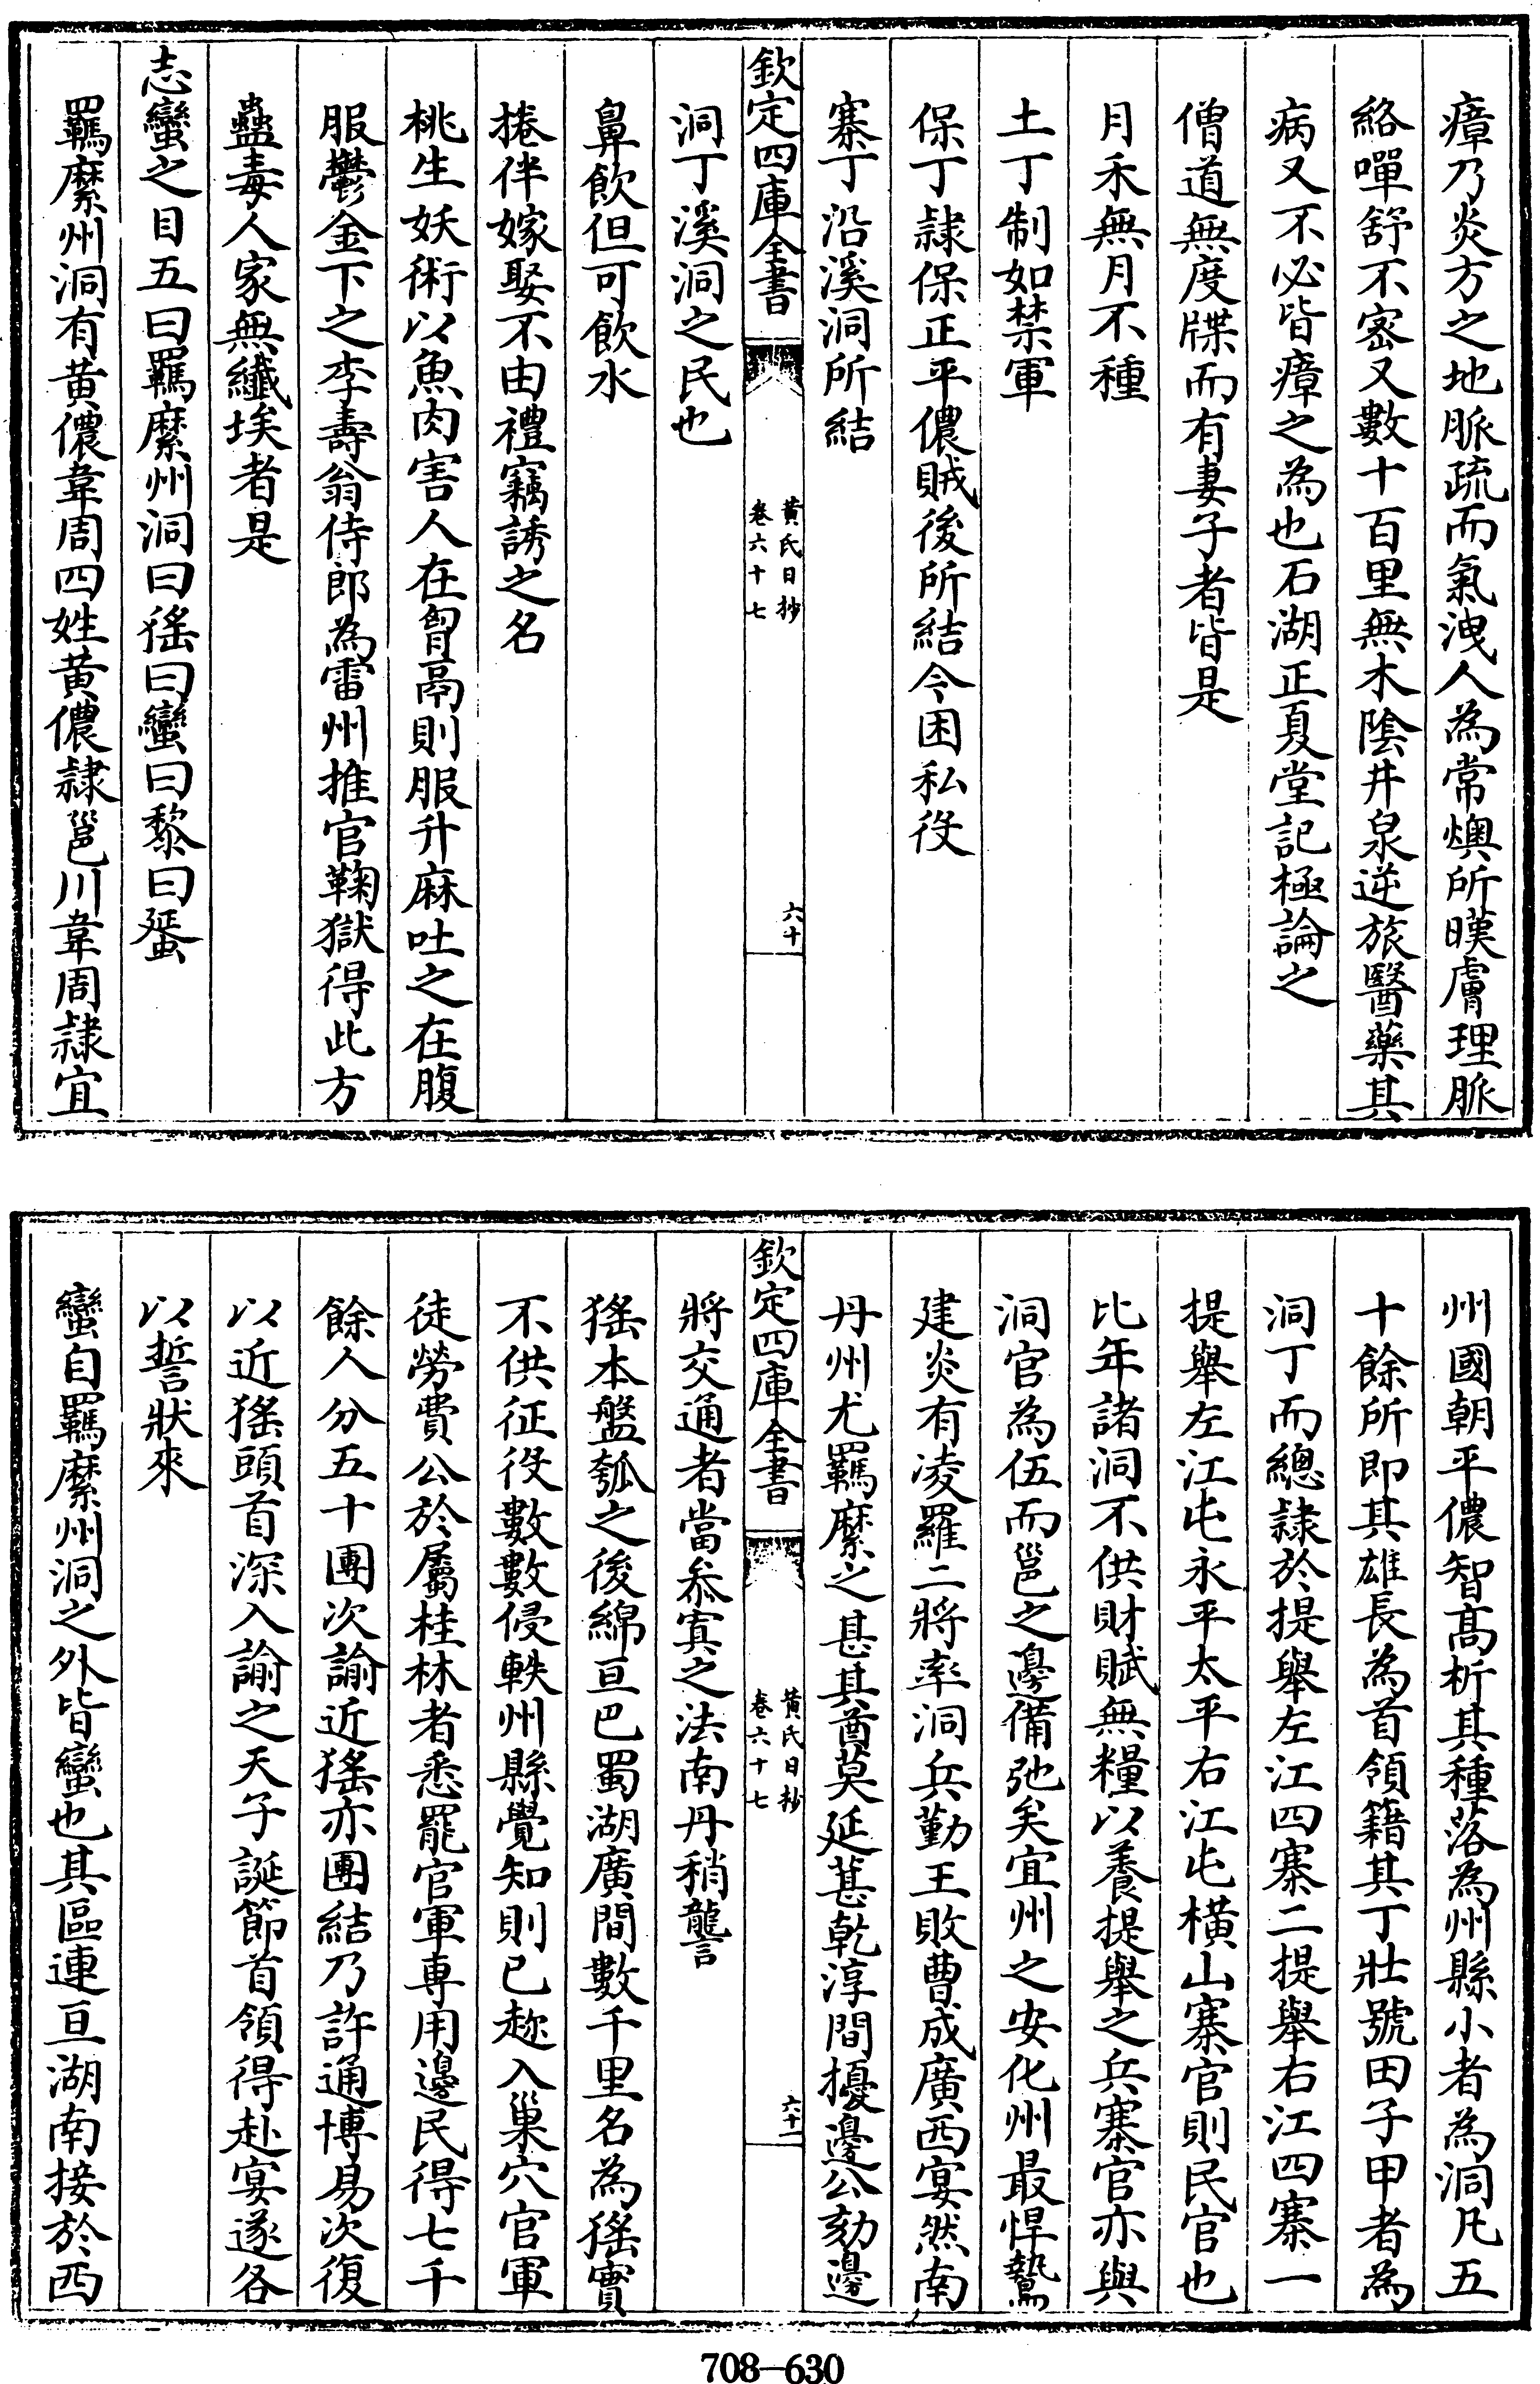 瘴乃炎方之地脈疏而氣洩人為常燠所暵膚理脈
絡嘽舒不密又數十百里無木陰井泉逆旅醫藥其
病又不必皆瘴之為也石湖正夏堂記極論之
僧道無度牒而有妻子者皆是
月禾無月不種
土丁制如禁軍
保丁隸保正平儂賊後所結今困私役
寨丁沿溪洞所結
欽定四庫全書
黃氏日抄
卷六十七
六十
洞丁溪洞之民也
鼻飲但可飲水
捲伴嫁娶不由禮竊誘之名
桃生妖術以魚肉害人在胷鬲則服升麻吐之在腹
服鬱金下之李壽翁侍郎為雷州推官鞠獄得此方
蠱毒人家無纖埃者是
志蠻之目五曰羈縻州洞曰猺曰蠻曰黎曰蜑
羈縻州洞有黃儂韋周四姓黃儂隸邕川韋周隸宜
州國朝平儂智高析其種落為州縣小者為洞凡五
十餘所即其雄長為首領籍其丁壯號田子甲者為
洞丁而總隸於提舉左江四寨二提舉右江四寨一
提舉左江屯永平太平右江屯橫山寨官則民官也
比年諸洞不供財賦無糧以養提舉之兵寨官亦與
洞官為伍而邕之邊備弛矣宜州之安化州最悍鷙
建炎有凌羅二將率洞兵勤王敗曹成廣西宴然南
丹州尤羈縻之甚其酋莫延葚乾淳間擾邊公劾邊
欽定四庫全書
黃氏日抄
卷六十七
六十一
將交通者當叅寘之法南丹稍讋
猺本盤瓠之後綿亘巴蜀湖廣間數千里名為猺實
不供征役數數侵軼州縣覺知則已趂入巢穴官軍
徒勞費公於屬桂林者悉罷官軍専用邊民得七千
餘人分五十團次諭近猺亦團結乃許通博易次復
以近猺頭首深入諭之天子誕節首領得赴宴遂各
以誓狀來
蠻自羈縻州洞之外皆蠻也其區連亘湖南接於西
708-630